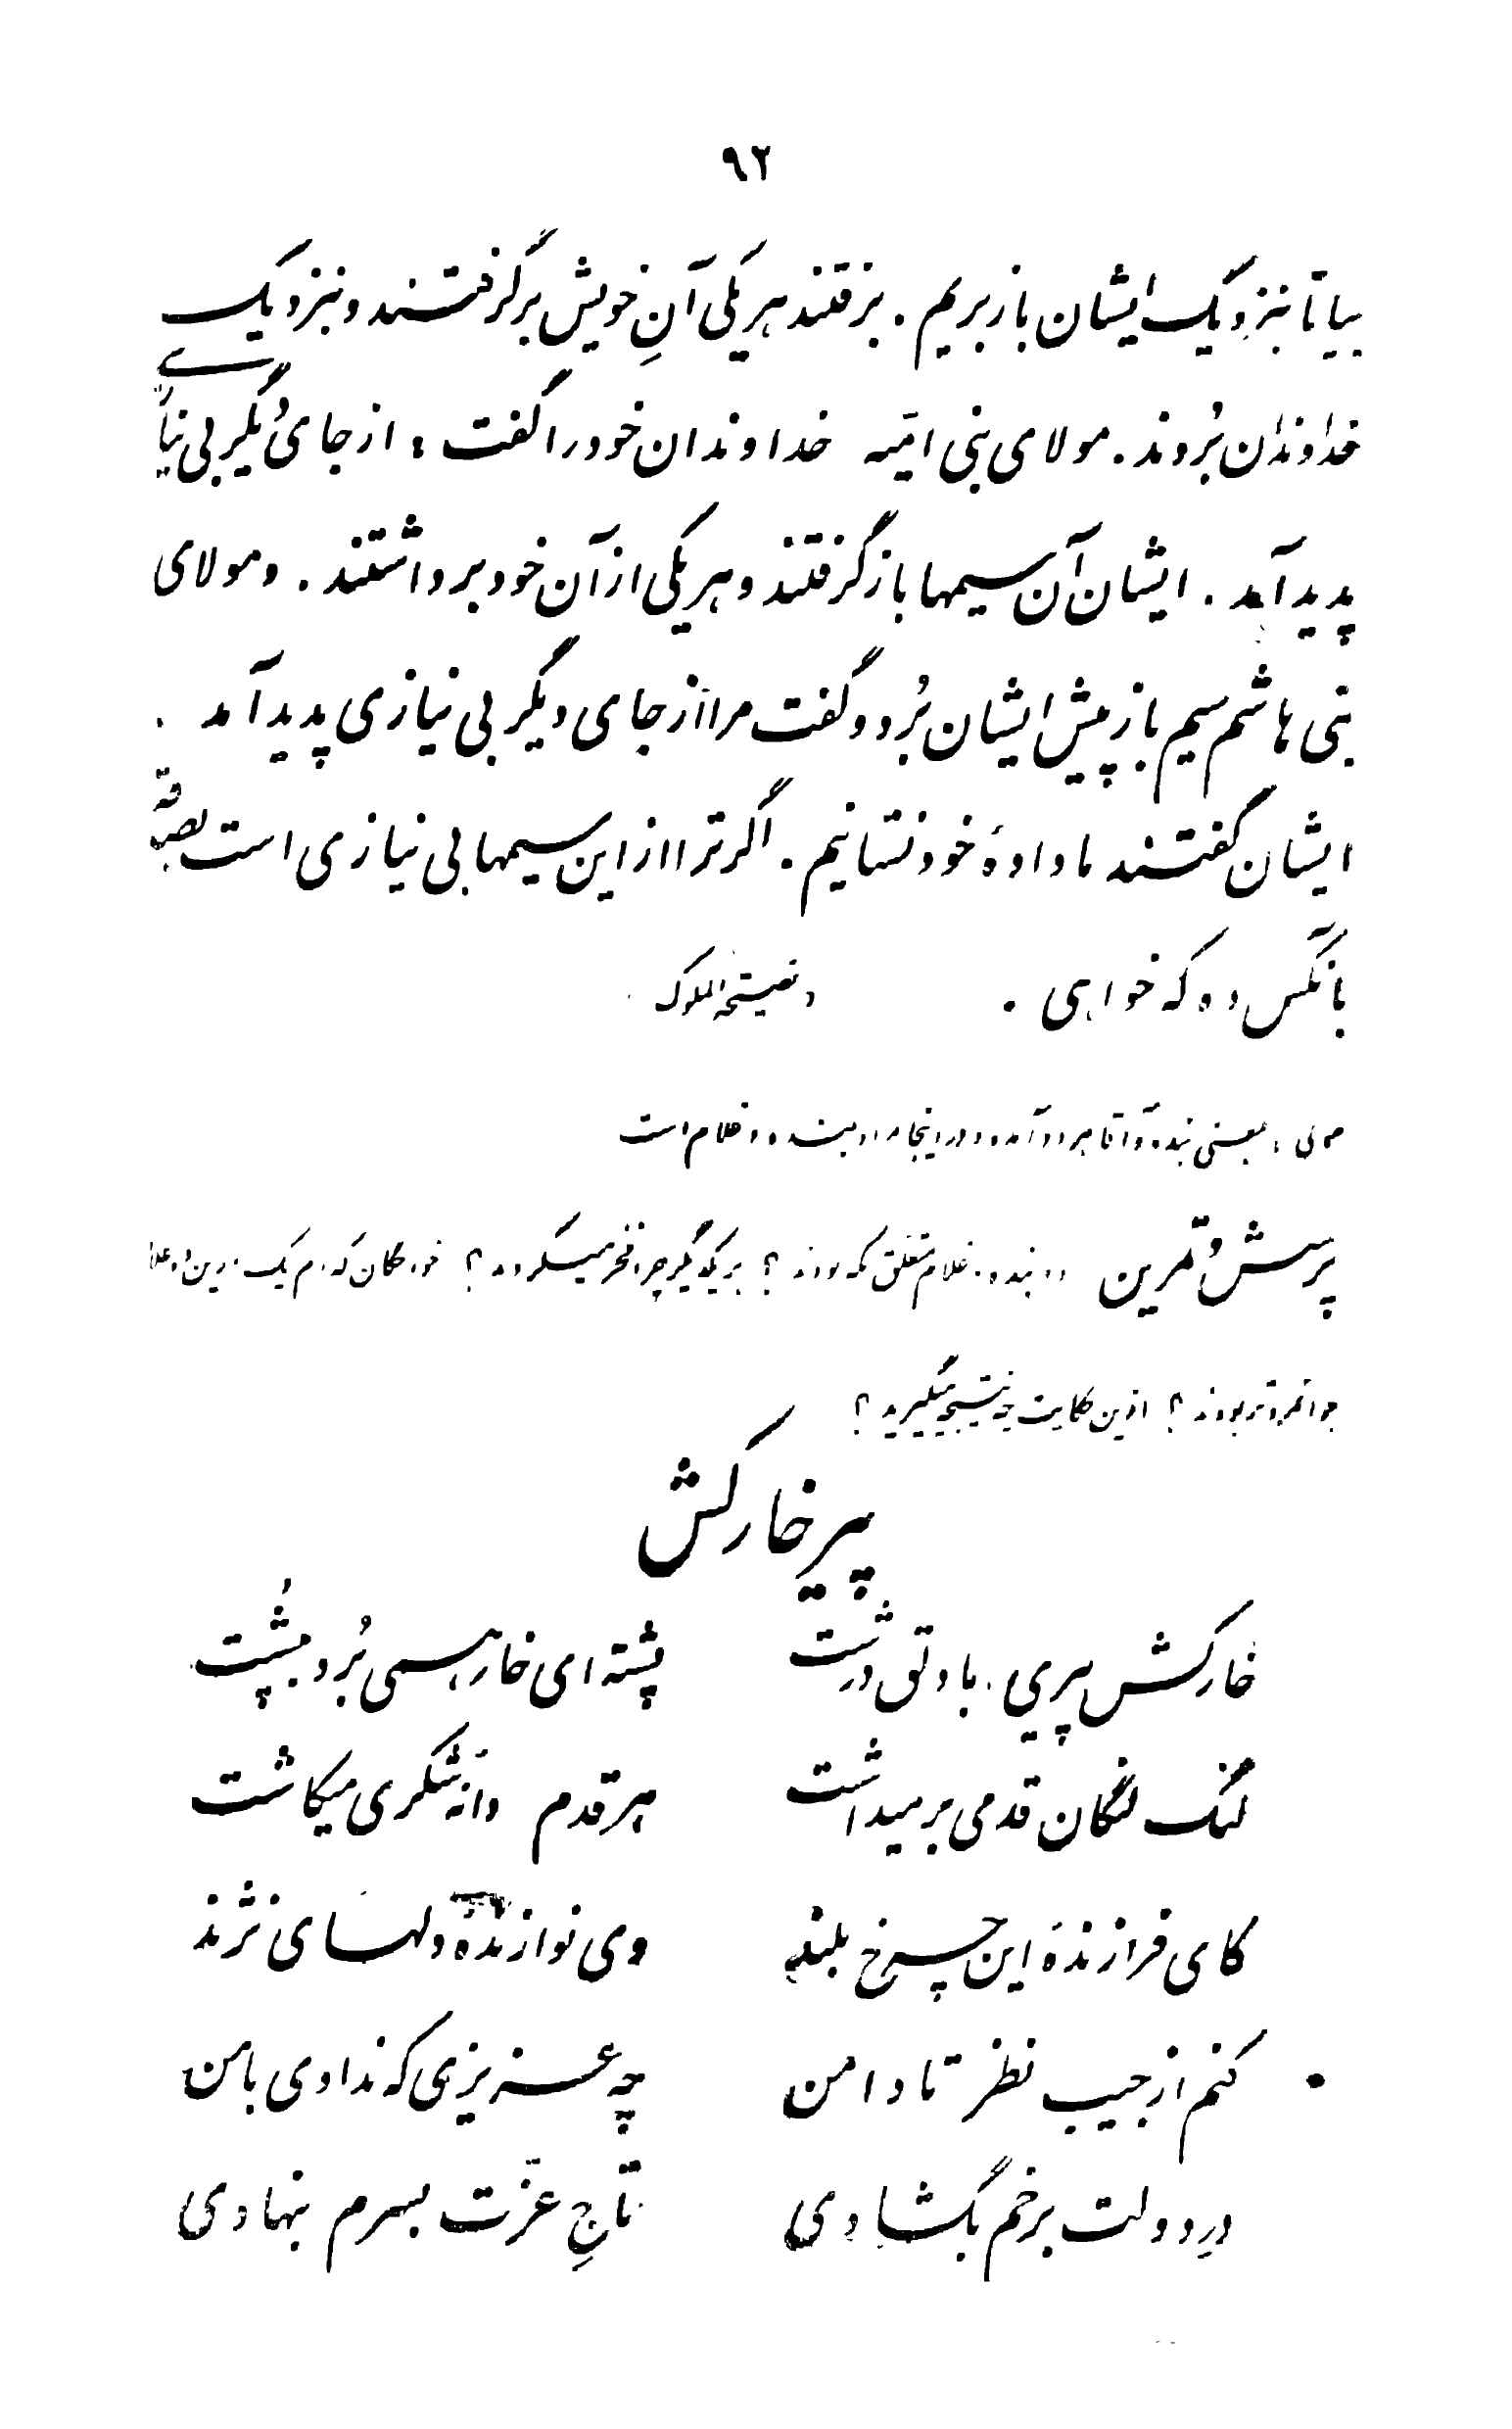 ۹۲
بیا تا بنزدیک ایشان باز بریم . برفتند هر یکی آنِ خویش برگرفتند و بنزدیک
خداوندان بُردند . مولای بنی امیّه خداوندان خود را گفت ، از جائی دیگر بی نیازی
پدید آمد . ایشان آن سیمها باز گرفتند و هر یکی از آن خود برداشتند . و مولای
بنی هاشم سیم باز پیش ایشان بُرد و گفت مرا از جای دیگر بی نیازی پدید آمد .
ایشان گفتند ما دادهٔ خود نستانیم . اگر ترا از این سیمها بی نیازی است بصدقه
بآنکس ده که خواهی . نصیحة الملوک
مولی ، بمعنی بنده و آقا هر دو آمده و در اینجا مراد بنده و غلام است
پرسش و تمرین دو بنده و غلام متعلق بکه بودند ؟ بر یکدیگر چرا فخر میکردند ؟ خواجگان کدام یک از این دو غلام
جوانمردتر بودند ؟ ازین حکایت چه نتیجه میگیرید ؟
پیر خارکش
خارکش پیری با دلق درشت پشته ای خار همی بُرد بپُشت
لنگ لنگان قدمی برمیداشت هر قدم دانهٔ شکری میکاشت
کای فرازندهٔ این چرخ بلند وی نوازندهٔ دلهای نژند
کنم از جیب نظر تا دامن چه عزیزی که ندادی با من
درِ دولت برخم بگشادی تاجِ عزّت بسرم بنهادی